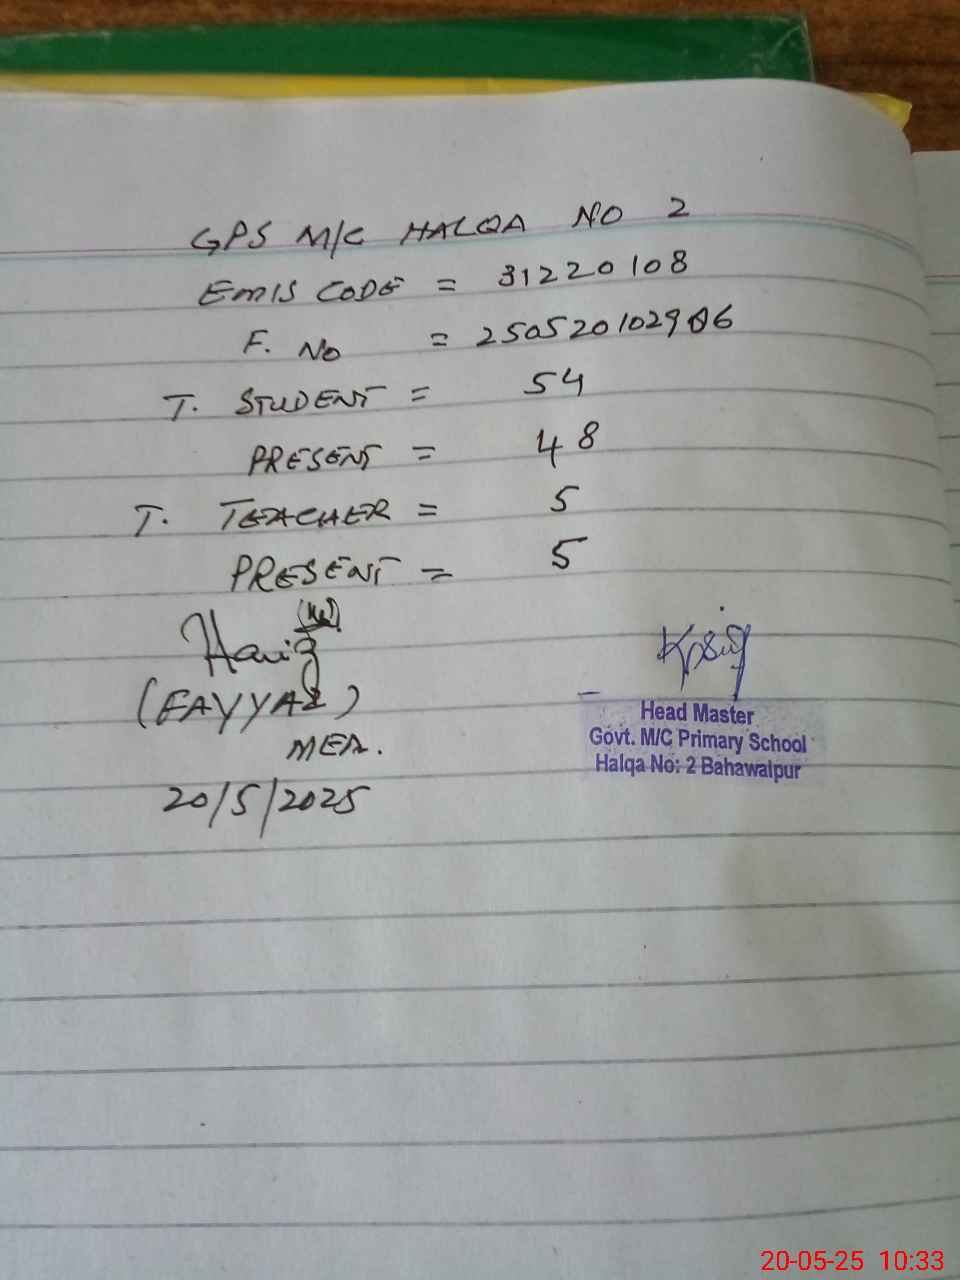 GPS M/C HALQA NO 2
EMIS CODE = 31220108
F. NO = 250520102906
T. STUDENT = 54
PRESENT = 48
T. TEACHER = 5
PRESENT = 5
(FAYYAZ)
MEA.
20/5/2025
Head Master
Govt. M/C Primary School
Halqa No: 2 Bahawalpur
20-05-25 10:33